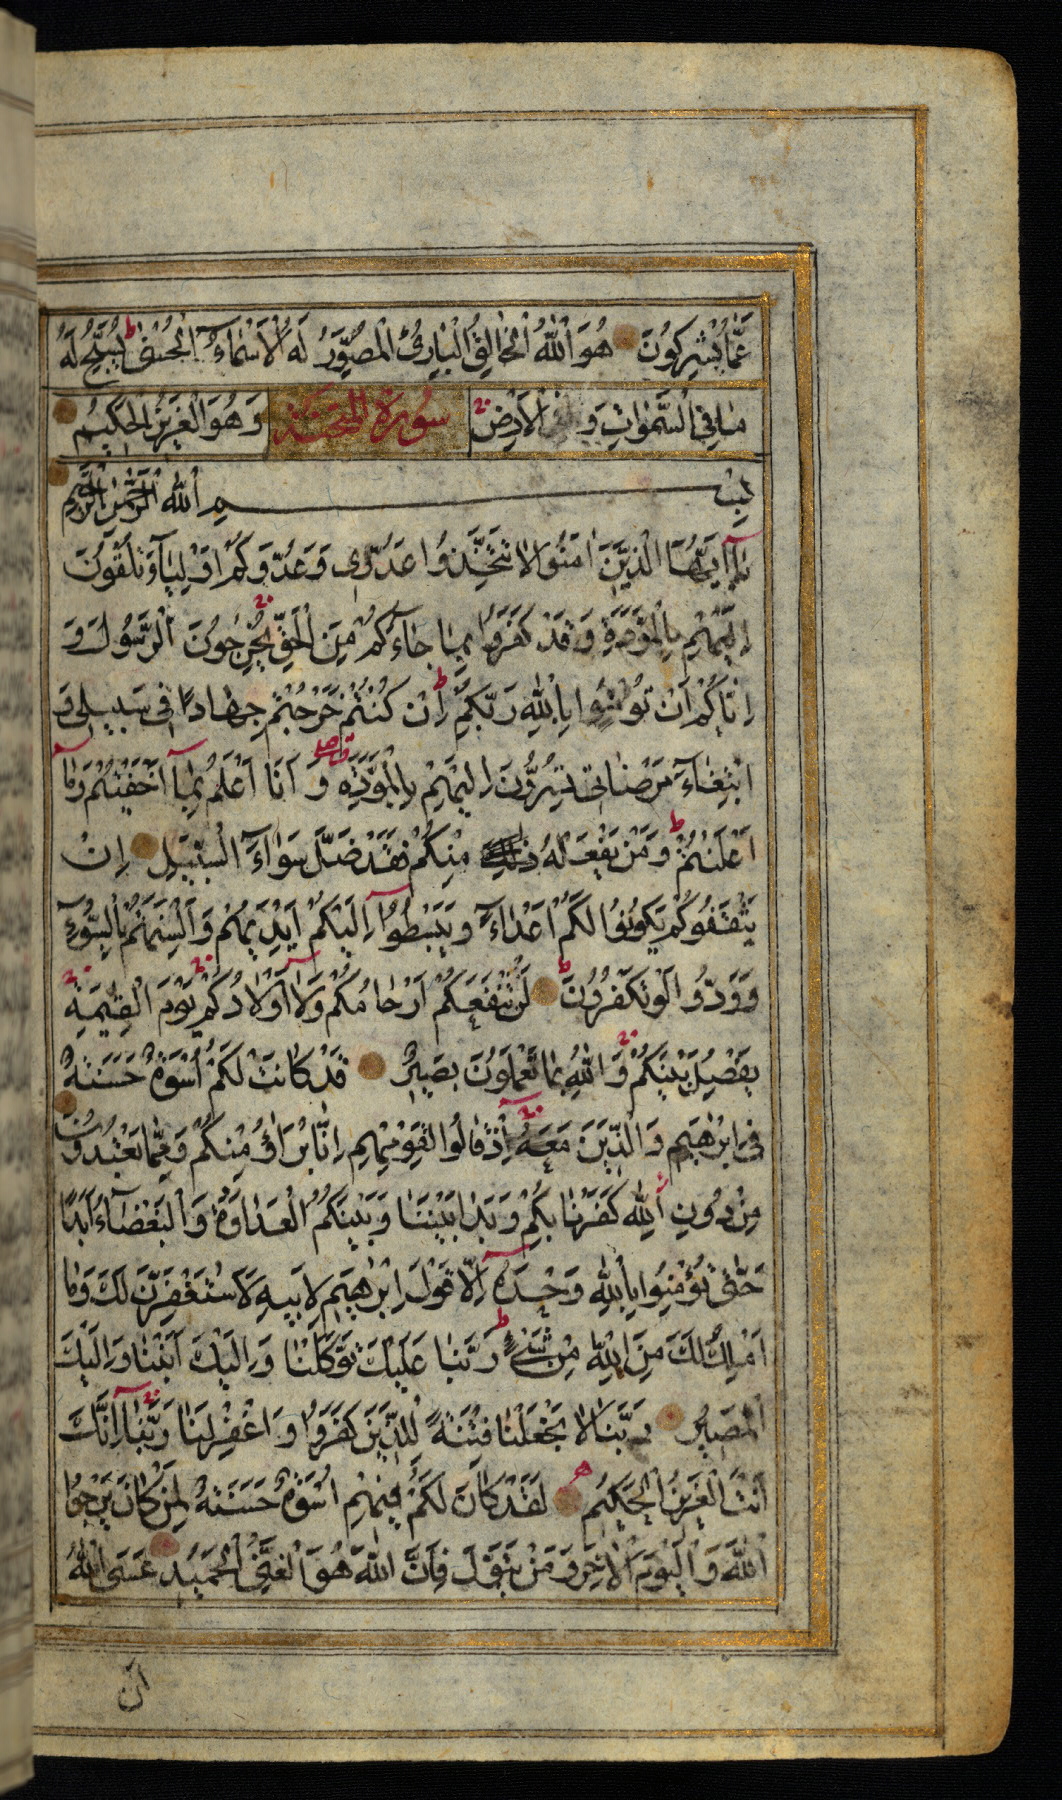 عَمَّا يُشْرِكُونَ هُوَ اللّٰهُ الْخَالِقُ الْبَارِئُ الْمُصَوِّرُ لَهُ الْاَسْمَاءُ الْحُسْنٰى يُسَبِّحُ لَهُ
مَا فِي السَّمٰوَاتِ وَ الْاَرْضِ سُورَةُ الممتحنة وَهُوَ الْعَزِيزُ الْحَكِيمُ
بِسْمِ اللّٰهِ الرَّحْمٰنِ الرَّحِيمِ
يَا اَيُّهَا الَّذِينَ اٰمَنُوا لَا تَتَّخِذُوا عَدُوِّي وَعَدُوَّكُمْ اَوْلِيَآءَ تُلْقُونَ
اِلَيْهِمْ بِالْمَوَدَّةِ وَقَدْ كَفَرُوا بِمَا جَآءَكُمْ مِنَ الْحَقِّ يُخْرِجُونَ الرَّسُولَ وَ
اِيَّاكُمْ اَنْ تُؤْمِنُوا بِاللّٰهِ رَبِّكُمْ اِنْ كُنْتُمْ خَرَجْتُمْ جِهَادًا فِي سَبِيلِي وَ
ابْتِغَآءَ مَرْضَاتِي تُسِرُّونَ اِلَيْهِمْ بِالْمَوَدَّةِ وَ اَنَا اَعْلَمُ بِمَآ اَخْفَيْتُمْ وَمَآ
اَعْلَنْتُمْ وَمَنْ يَفْعَلْهُ مِنْكُمْ فَقَدْ ضَلَّ سَوَآءَ السَّبِيلِ اِنْ
يَثْقَفُوكُمْ يَكُونُوا لَكُمْ اَعْدَآءً وَيَبْسُطُوآ اِلَيْكُمْ اَيْدِيَهُمْ وَاَلْسِنَتَهُمْ بِالسُّوٓءِ
وَوَدُّوا لَوْ تَكْفُرُونَ لَنْ تَنْفَعَكُمْ اَرْحَامُكُمْ وَلَآ اَوْلَادُكُمْ يَوْمَ الْقِيٰمَةِ
يَفْصِلُ بَيْنَكُمْ وَاللّٰهُ بِمَا تَعْمَلُونَ بَصِيرٌ قَدْ كَانَتْ لَكُمْ اُسْوَةٌ حَسَنَةٌ
فِي اِبْرٰهِيمَ وَالَّذِينَ مَعَهُ اِذْ قَالُوا لِقَوْمِهِمْ اِنَّا بُرَآؤُ مِنْكُمْ وَمِمَّا تَعْبُدُونَ
مِنْ دُونِ اللّٰهِ كَفَرْنَا بِكُمْ وَبَدَا بَيْنَنَا وَبَيْنَكُمُ الْعَدَاوَةُ وَالْبَغْضَآءُ اَبَدًا
حَتّٰى تُؤْمِنُوا بِاللّٰهِ وَحْدَهُ اِلَّا قَوْلَ اِبْرٰهِيمَ لِاَبِيهِ لَاَسْتَغْفِرَنَّ لَكَ وَمَا
اَمْلِكُ لَكَ مِنَ اللّٰهِ مِنْ شَيْءٍ رَبَّنَا عَلَيْكَ تَوَكَّلْنَا وَاِلَيْكَ اَنَبْنَا وَاِلَيْكَ
الْمَصِيرُ رَبَّنَا لَا تَجْعَلْنَا فِتْنَةً لِلَّذِينَ كَفَرُوا وَاغْفِرْ لَنَا رَبَّنَآ اِنَّكَ
اَنْتَ الْعَزِيزُ الْحَكِيمُ لَقَدْ كَانَ لَكُمْ فِيهِمْ اُسْوَةٌ حَسَنَةٌ لِمَنْ كَانَ يَرْجُوا
اللّٰهَ وَالْيَوْمَ الْاٰخِرَ وَمَنْ يَتَوَلَّ فَاِنَّ اللّٰهَ هُوَ الْغَنِيُّ الْحَمِيدُ عَسَى اللّٰهُ
اَنْ